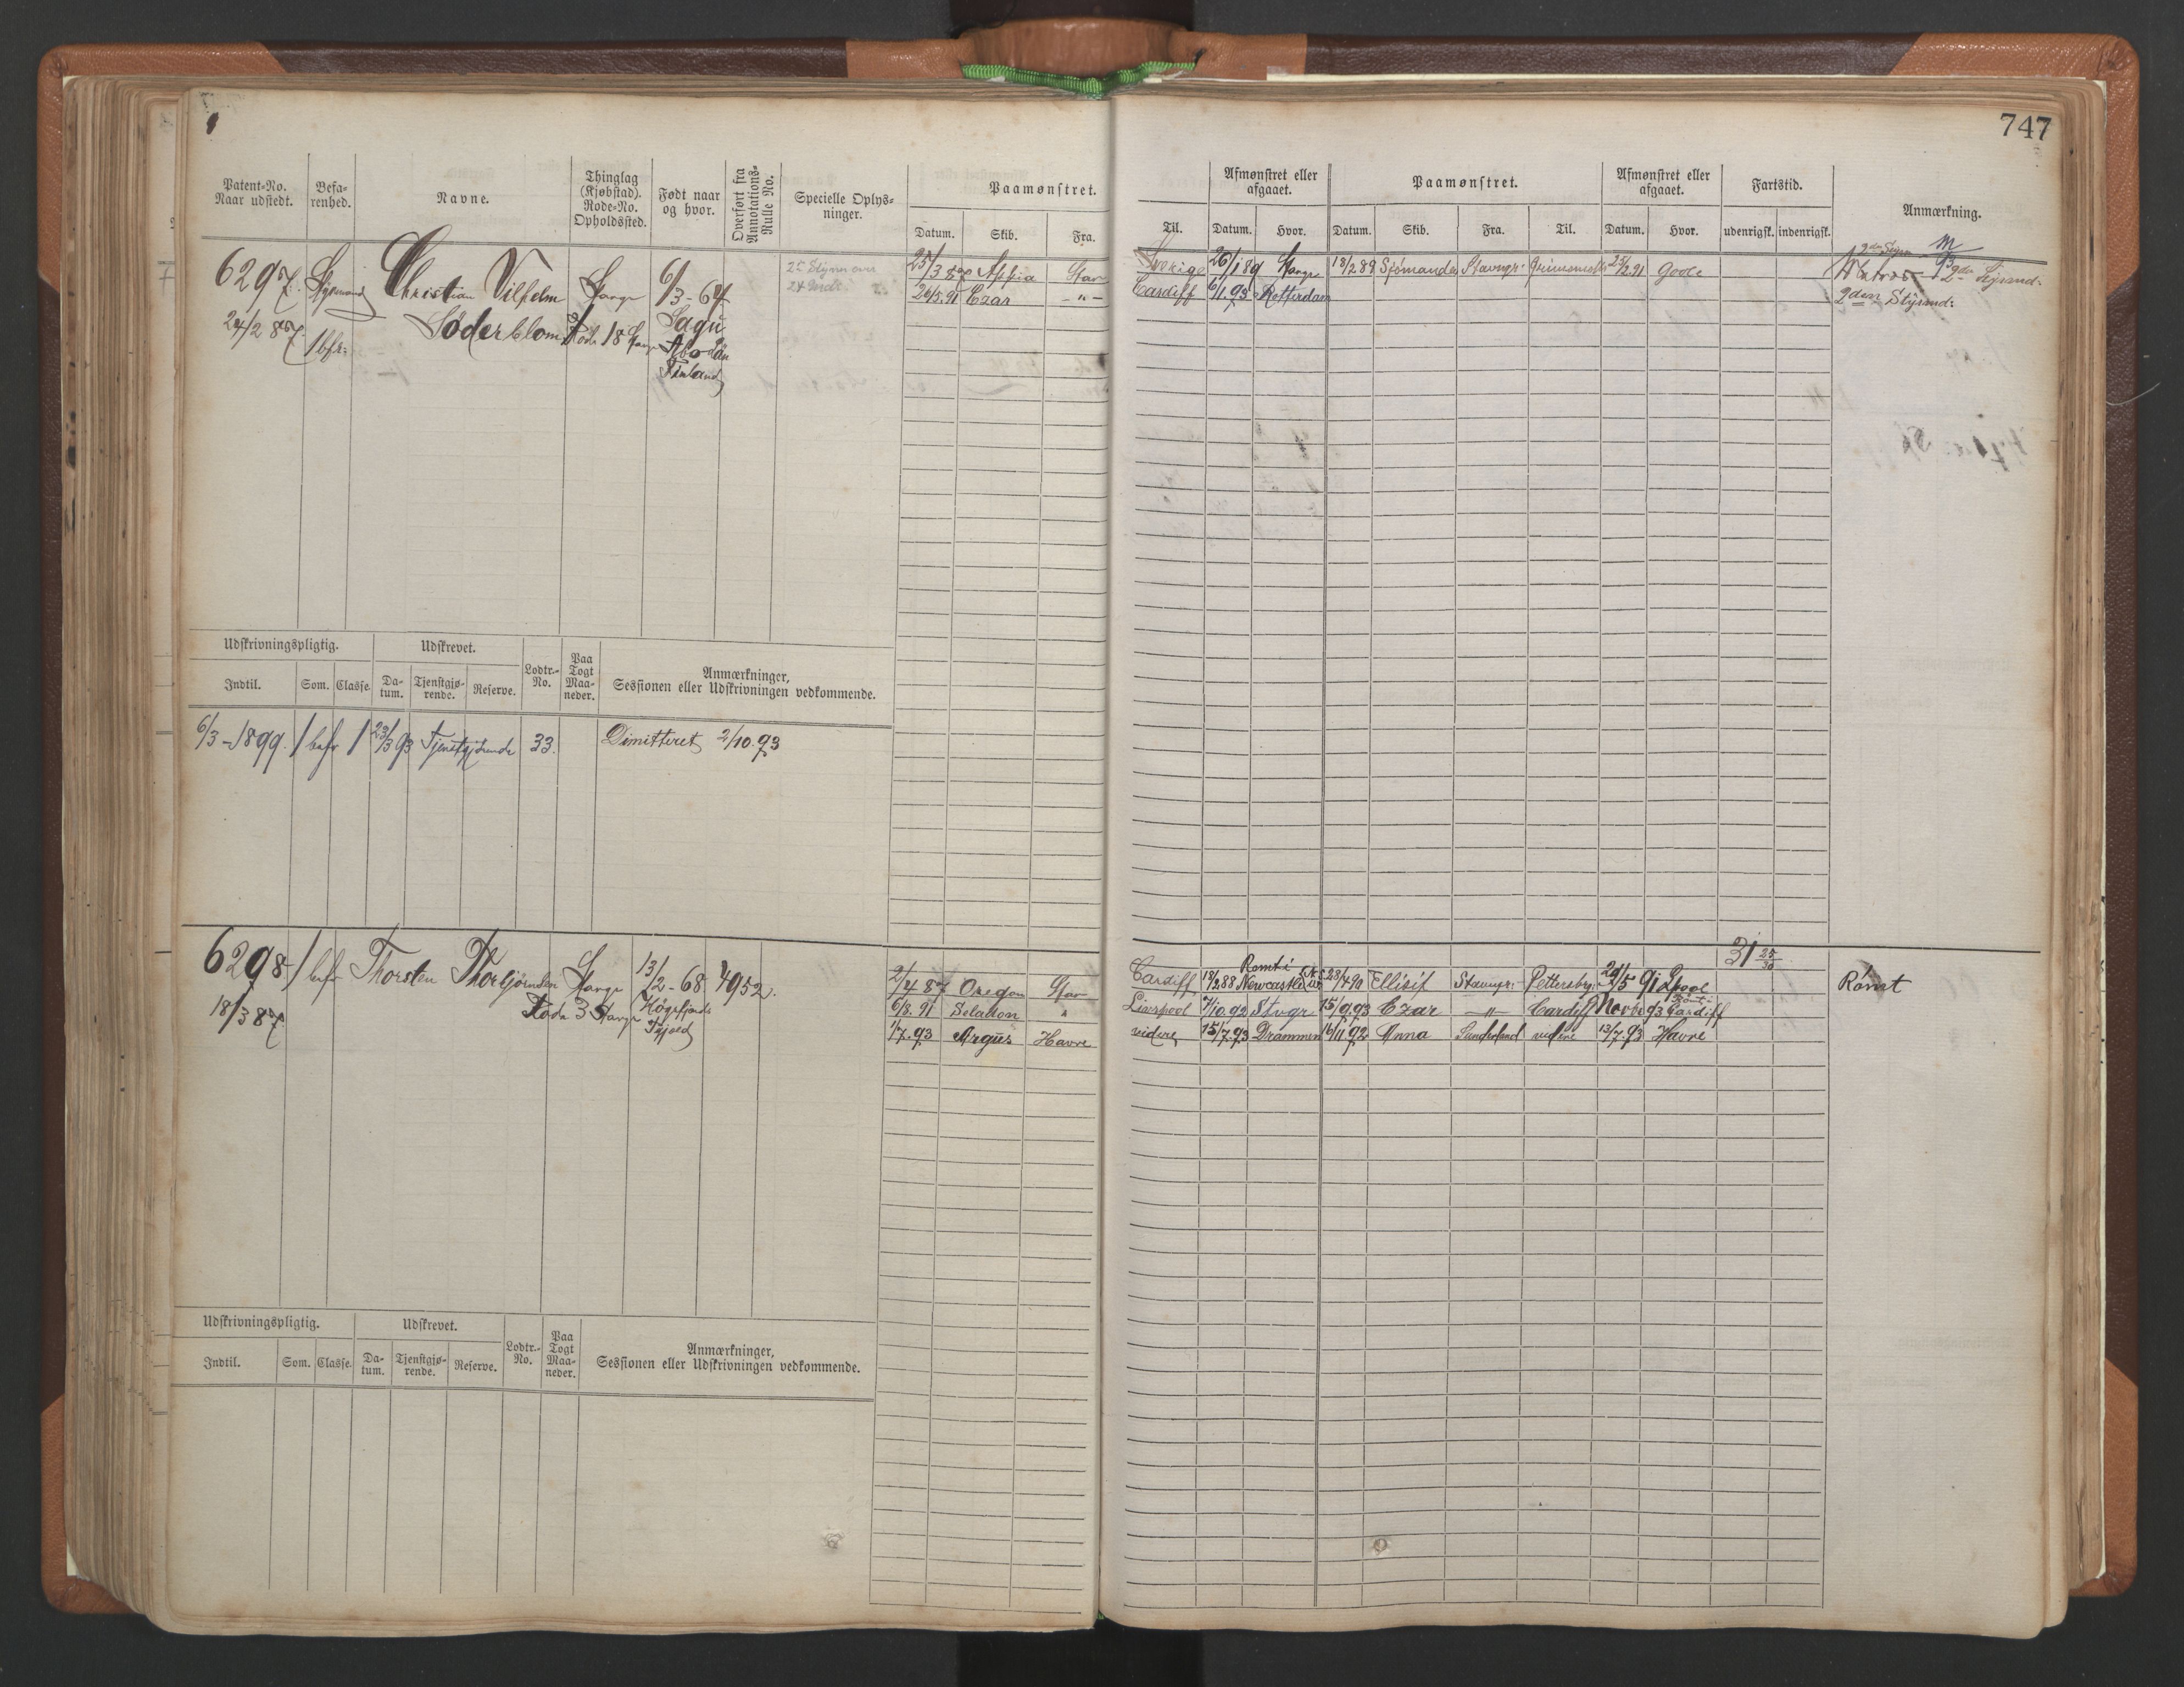 747
Patent-No. Naar udstedt.
Befarenhed.
Navne.
Thinglag (Kjøbstad). Rode-No. Opholdssted.
Født naar og hvor.
Overført fra Annotations-Rulle No.
Specielle Oplysninger.
Paamønstret.
Datum. Skib. Fra. Til.
Afmønstret eller afgaaet.
Datum. Hvor.
Paamønstret.
Datum. Skib. Fra. Til.
Afmønstret eller afgaaet.
Datum. Hvor.
Fartstid.
udenrigsk. indenrigsk.
Anmærkning.
6297. Christian Vilhelm 6/3-64
24/2 87. Söderblom Rode 18
1 bfr: Sagu
Åbo Län
Finland
25/3 87 Stav Sverige 26/1 89 Stavgr 13/2 89 Sjömanden Stavngr: 25/2 91 Goole
26/3.91 Czar -"- Cardiff 6/1.93 Rotterdam
2den Styrmd:
Udskrivningspligtig. Udskrevet.
Indtil. Som. Classe. Datum. Tjenstgjørende. Reserve. Lodtr.-No. Paa Togt Maaneder.
Anmærkninger, Sessionen eller Udskrivningen vedkommende.
6/3-1899. 1 befr 1 23/3 93 Tjenstgjörende 33. Dimitteret 2/10.93
31 25/30
6298 1 befr Thorsten Thorbjörnsen Stavgr 13/2-68 4952.
18/3 87. Rode 3 Stavgr Högsfjord
2/4 87 Oregon Stav Cardiff 18/2 88 Rømt i Newcastle 28/4 90 Ellisif Stavngr: Pettersbrg: 20/5 91 Lpool Rømt
6/8.91 Seladon " Liverpool 7/10.92 Stvgr 15/9.93 Czar -"- Cardiff Novbr 93 Rømt i Cardiff
1/7.93 Argus Havre videre 15/7.93 Drammen 16/11.92 Anna Sunderland videre 13/7.93 Havre
Udskrivningspligtig. Udskrevet.
Indtil. Som. Classe. Datum. Tjenstgjørende. Reserve. Lodtr.-No. Paa Togt Maaneder.
Anmærkninger, Sessionen eller Udskrivningen vedkommende.